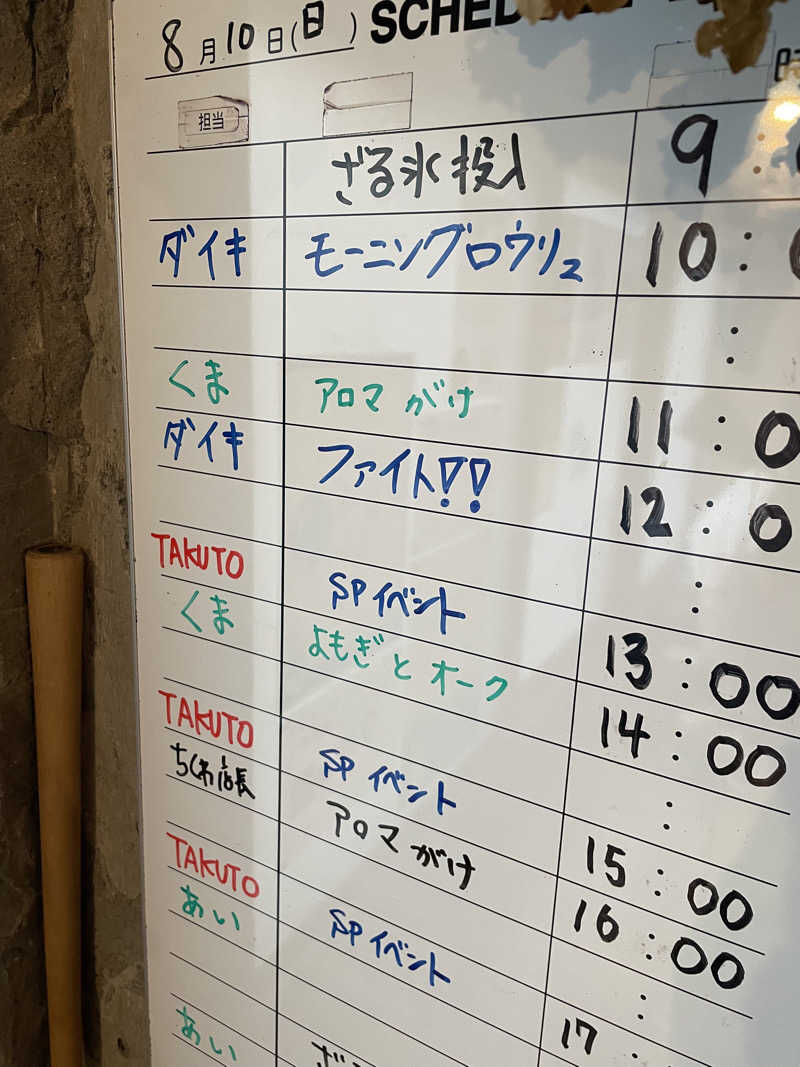 8月10日(日) SCHED
担当
ざる氷投入 9:
ダイキ モーニングロウリュ 10:0
:
くま アロマがけ 11:0
ダイキ ファイト!! 12:0
:
TAKUTO SPイベント 13:00
くま よもぎとオーク 14:00
:
TAKUTO SPイベント 15:00
ちくわ店長 アロマがけ 16:00
:
TAKUTO SPイベント 17:
あい
あい ざ